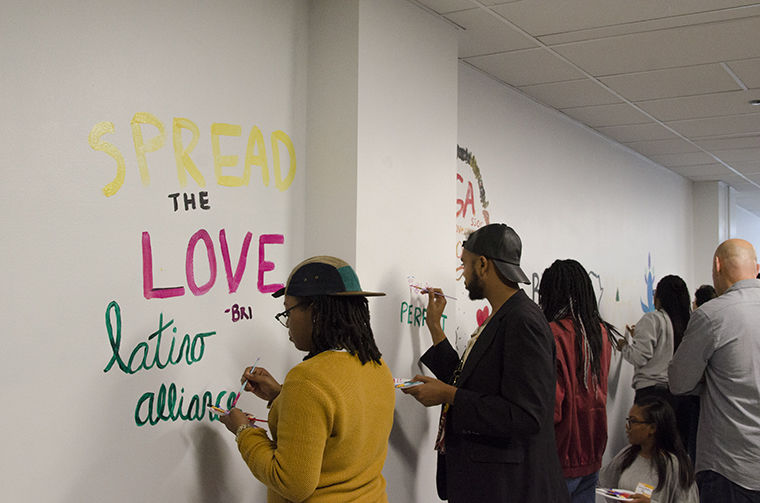 SPREAD
THE
LOVE
-BRI
latino
alliance
PERFECT
SA